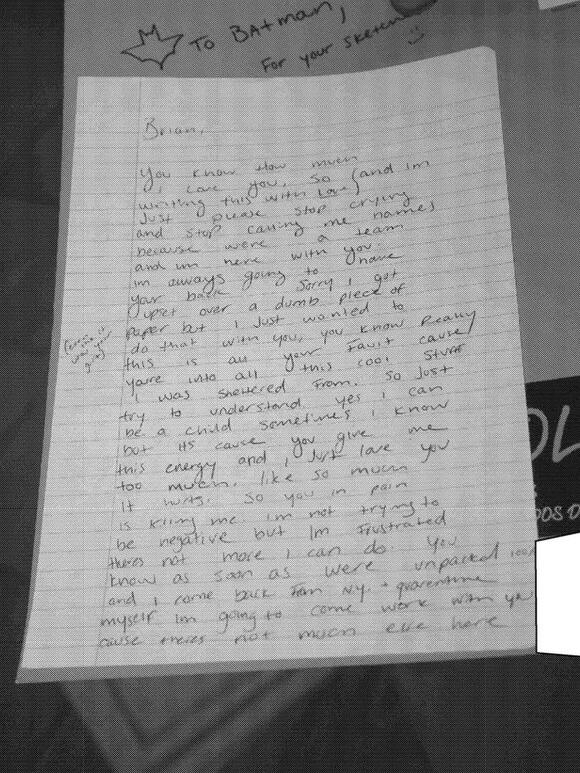 To BAtman,
For your sketch
Brian,
You know How much
I Love you, so (and im
writing this with Love)
Just please stop crying
and stop calling me names
because were a team
and im here with you.
im always going to have
your back. Sorry I got
upset over a dumb piece of
paper but I just wanted to
do that with you, you know Really
this is all your Fault cause
youre into all this cool stuff
I was sheltered From. So Just
try to understand. yes I can
be a child sometimes I know
but its cause you give me
this energy and I Just love you
too much. like so much
it hurts. so you in pain
is killing me. im not trying to
be negative but Im Frustrated
theres not more I can do. You
know as soon as were unpacked
and I come back From N.Y. + quarentine
myself im going to come work with you
cause theres not much else here
OL
OOS D